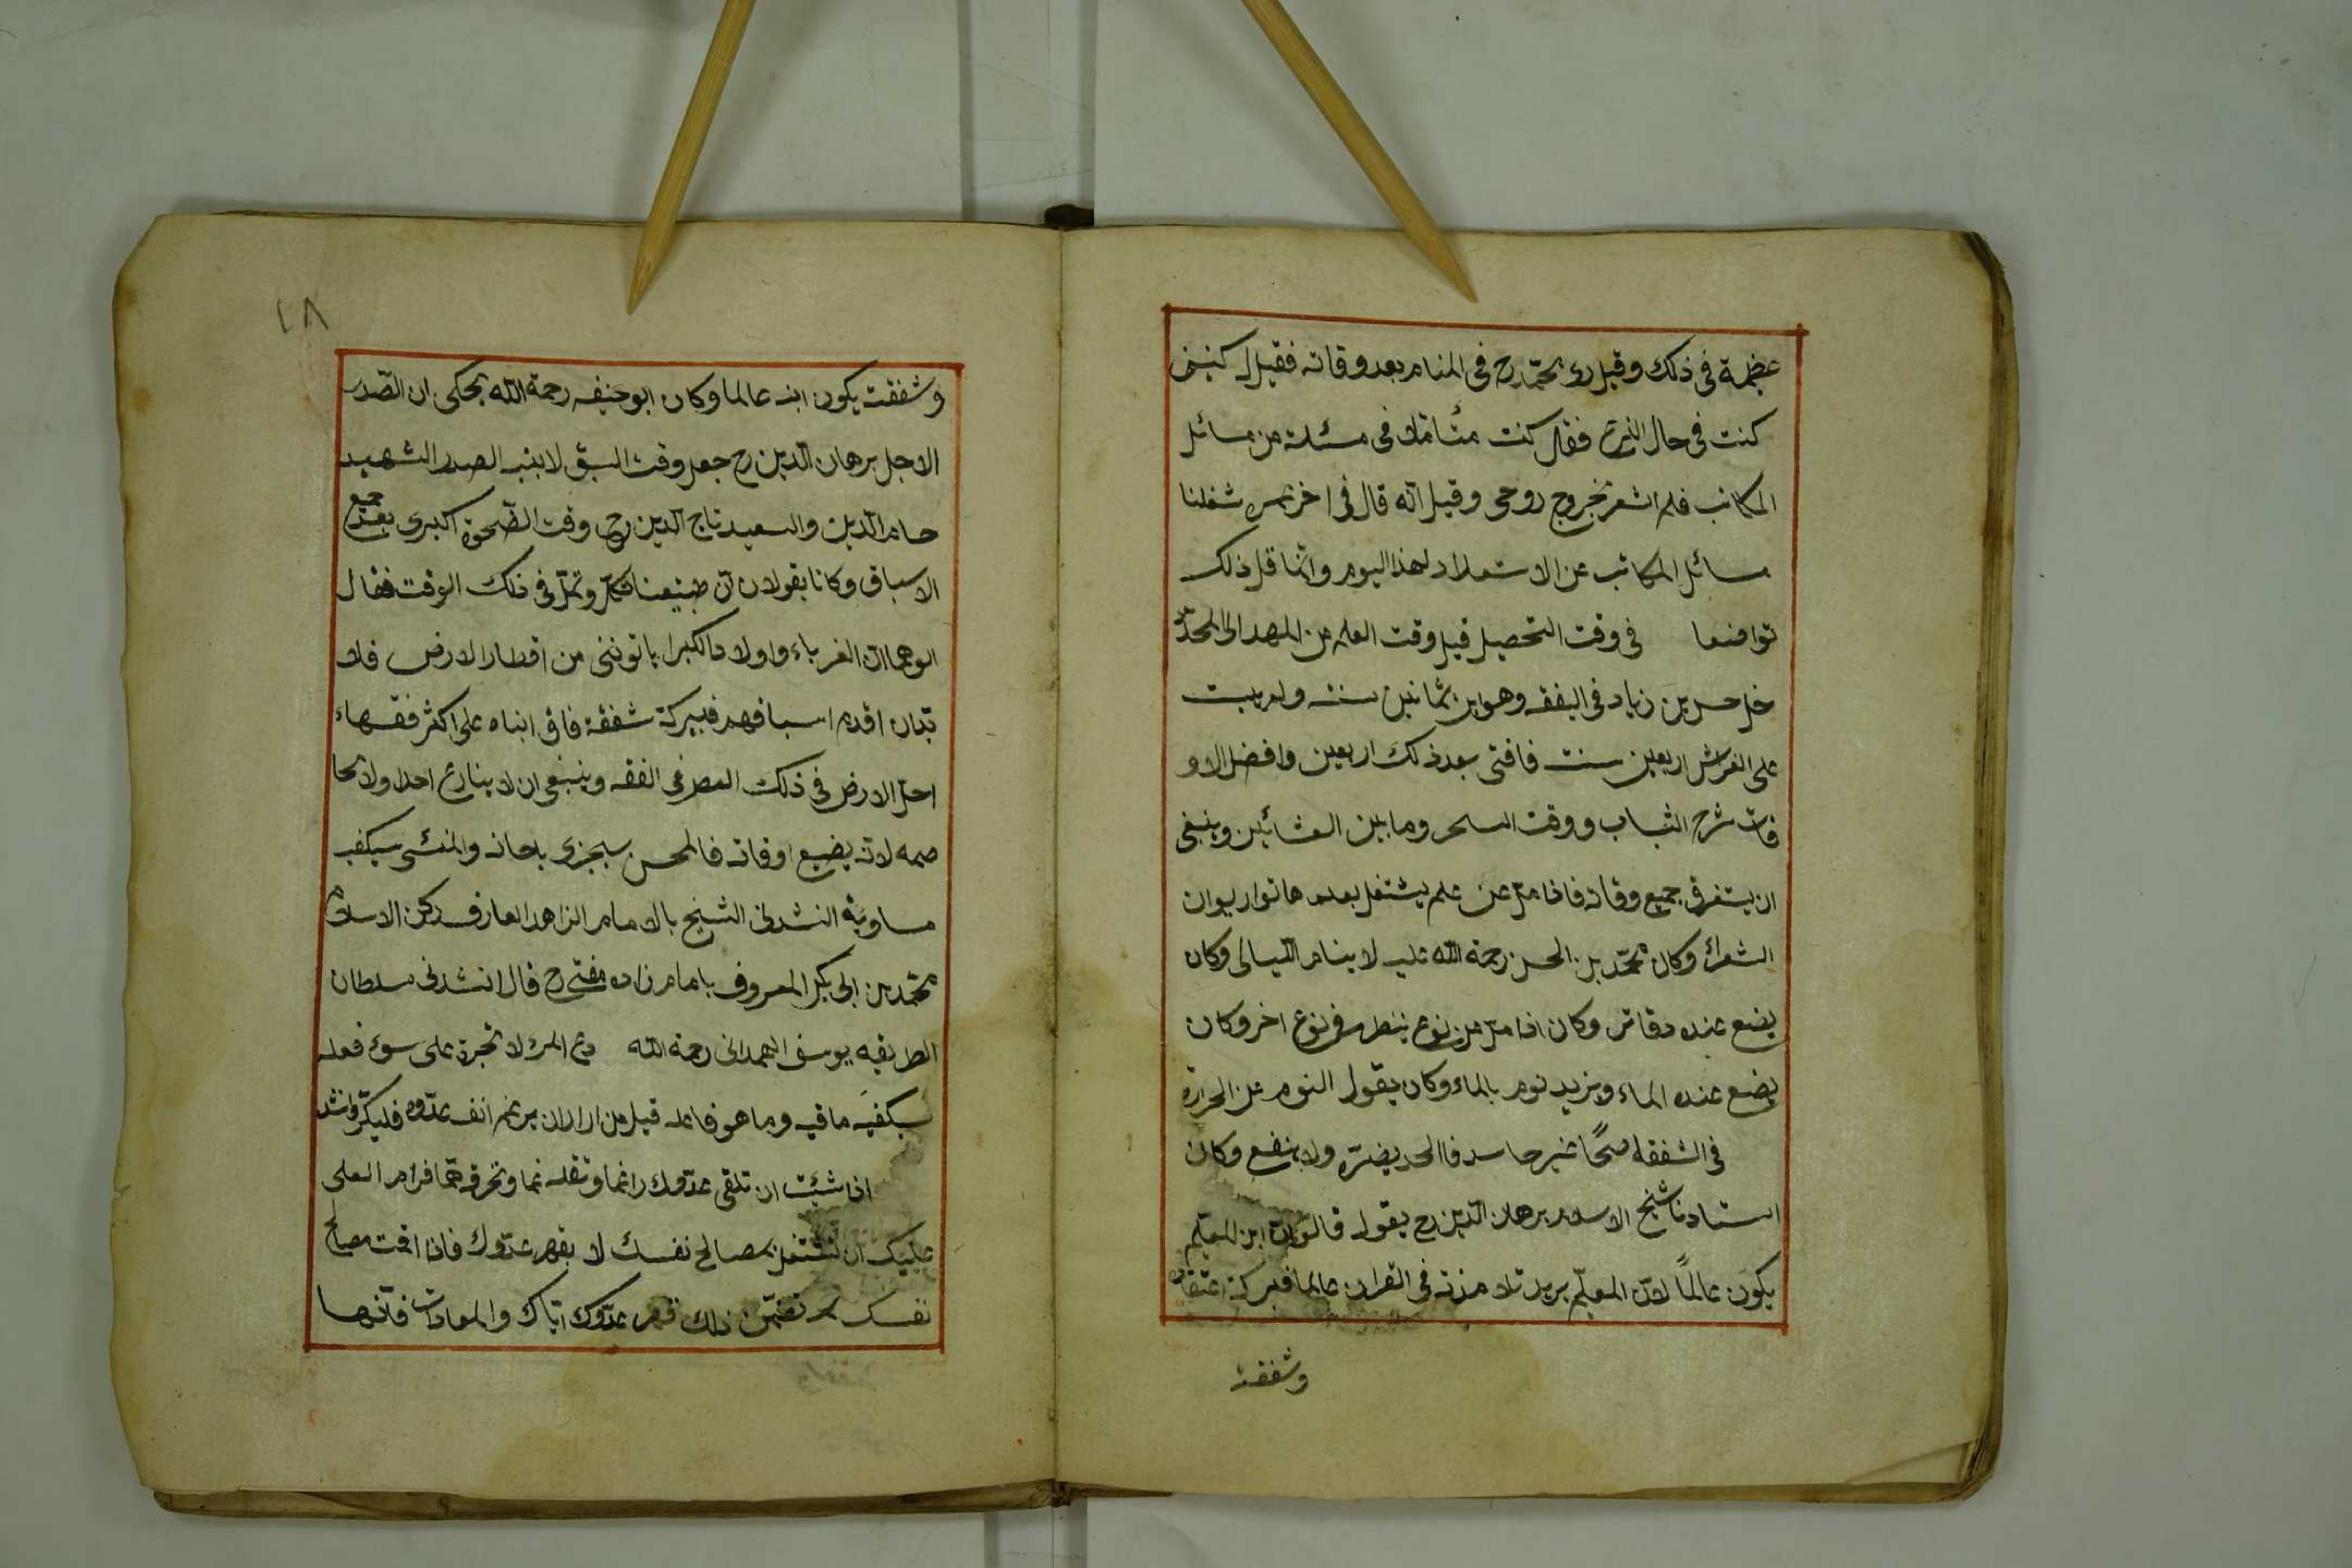 عظيمة فى ذلك وقيل رؤى محمّد رح فى المنام بعد وفاته فقيل له كيف
كنت فى حال النزع فقال كنت متأملا فى مسئلة من مسائل
المكاتب فلم اشعر بخروج روحى وقيل انه قال فى اخر عمره شغلنا
مسائل المكاتب عن الاستعداد لهذا اليوم وانّما قال ذلك
تواضعا فى وقت التحصيل قيل وقت العلم من المهد الى اللحد
دخل حسن بن زياد فى التفقه وهو ابن ثمانين سنة ولم يبت
على الفراش اربعين سنت فافتى بعد ذلك اربعين وافضل الاو
قات شرح الشباب ووقت السحر وما بين العشائين وينبغى
ان يستغرق جميع وقاته فاذا ملّ عن علم يشتغل بعده هاتوا ديوان
الشعراء وكان محمّد بن الحسن رحمة الله عليه لا ينام الليالى وكان
يضع عنده دفاتر وكان اذا ملّ من نوع ينظر فى نوع اخر وكان
يضع عنده الماء ويزيد نوم بالماء وكان يقول النوم من الحرارة
فى الشفقة صحًا غير حاسد فالحسد يضرّه ولا ينفع وكان
استادنا شيخ الاسلام برهان الدّين رح يقول قالوا انّ ابن المعلّم
يكون عالمًا لانّ المعلّم يريد تلامذته فى القران عالما فبركة اعتقاده
وشفقته
٤٨
وشفقت يكون ابنه عالما وكان ابو حنيفه رحمة الله يحكى ان الصّدر
الاجل برهان الدّين رح جعل وقت السبق لابنيه الصدر الشهيد
حسام الدّين والسعيد تاج الدّين رح وقت الضّحوة الكبرى بعد جميع
الاسباق وكانا يقولان انّ طبيعتنا تكلّ وتملّ فى ذلك الوقت فقال
ابوهما انّ الغرباء واولاد الكبرا ياتوننى من اقطار الارض فلا
بدّ ان اقدم اسباقهم فببركة شفقة فاق ابناه على اكثر فقهاء
اهل الارض فى ذلك العصر فى الفقه وينبغى ان لا ينازع احدا ولا يخا
صمه لانه يضيع اوقاته فالمحسن سيجزى باحسانه والمسئى سيكفيه
مساويه انشدنى الشيخ بالامام الزاهد العارف ركن الاسلام
محمّد بن ابى بكر المعروف بامام زاده مفتى رح قال انشدنى سلطان
الطريقه يوسف الهمدانى رحمة الله دع المرء لا تجره على سوء فعله
سيكفيه ما فيه وما هو فاعله قيل من اراد ان يرغم انف عدّوه فليكرّر وانشد
اذا شئت ان تلقى عدّوك راغما وتقتله غما وتحرقه همّا فرام العلى
عليك ان تشتغل بمصالح نفسك لا بقهر عدّوك فاذا اقمت مصالح
نفسك تضمّن ذلك قهر عدّوك ايّاك والمعادات فانّها